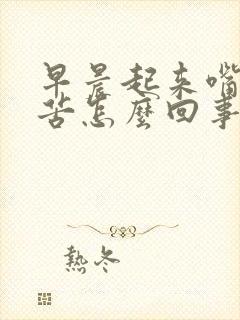 早晨起来嘴
苦怎麼回事
熱冬